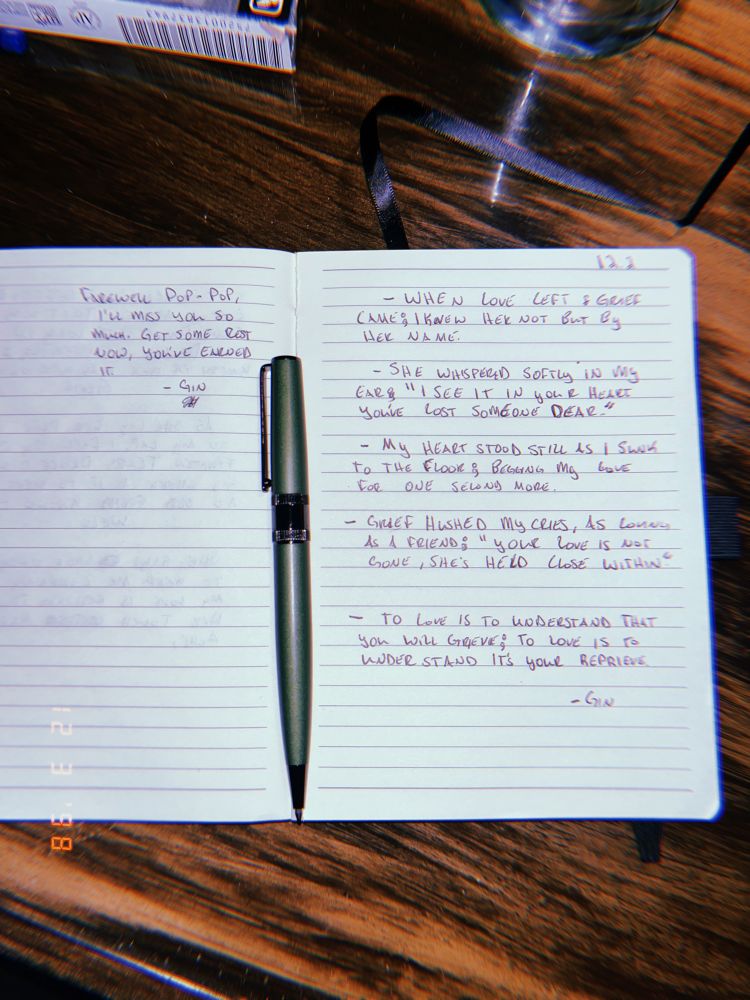 FAREWELL POP-POP,
I'LL MISS YOU SO
MUCH. GET SOME REST
NOW, YOU'VE EARNED
IT
- GIN
12.2
- WHEN LOVE LEFT & GRIEF
CAME; I KNEW HER NOT BUT BY
HER NAME.
- SHE WHISPERED SOFTLY IN MY
EAR; "I SEE IT IN YOUR HEART
YOU'VE LOST SOMEONE DEAR."
- MY HEART STOOD STILL AS I SUNK
TO THE FLOOR; BEGGING MY LOVE
FOR ONE SECOND MORE.
- GRIEF HUSHED MY CRIES, AS LOVING
AS A FRIEND; "YOUR LOVE IS NOT
GONE, SHE'S HELD CLOSE WITHIN"
- TO LOVE IS TO UNDERSTAND THAT
YOU WILL GRIEVE; TO LOVE IS TO
UNDERSTAND IT'S YOUR REPRIEVE.
- GIN
12 3 '98